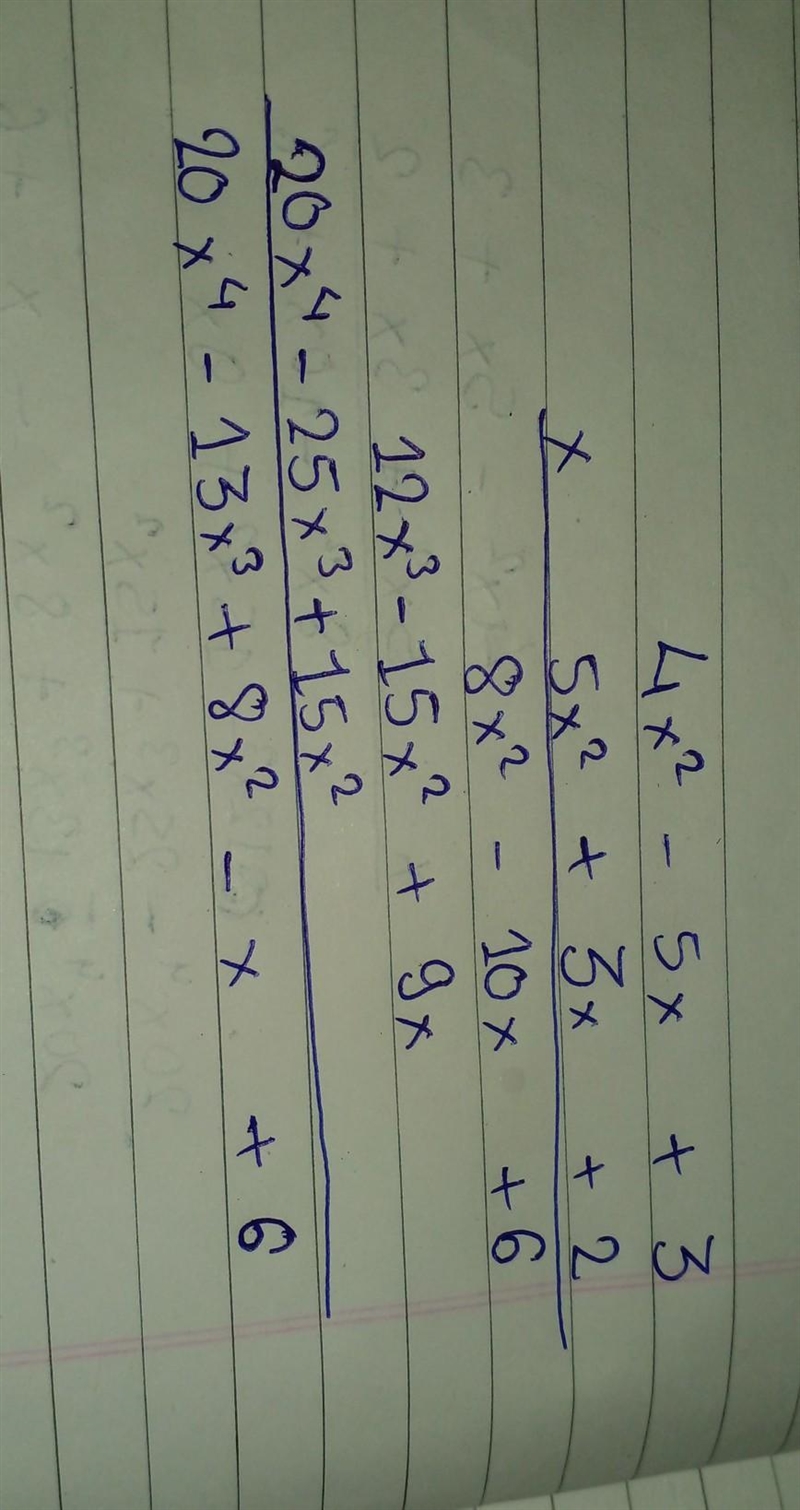 4x² - 5x + 3
× 5x² + 3x + 2
8x² - 10x + 6
12x³ - 15x² + 9x
20x⁴ - 25x³ + 15x²
20x⁴ - 13x³ + 8x² - x + 6